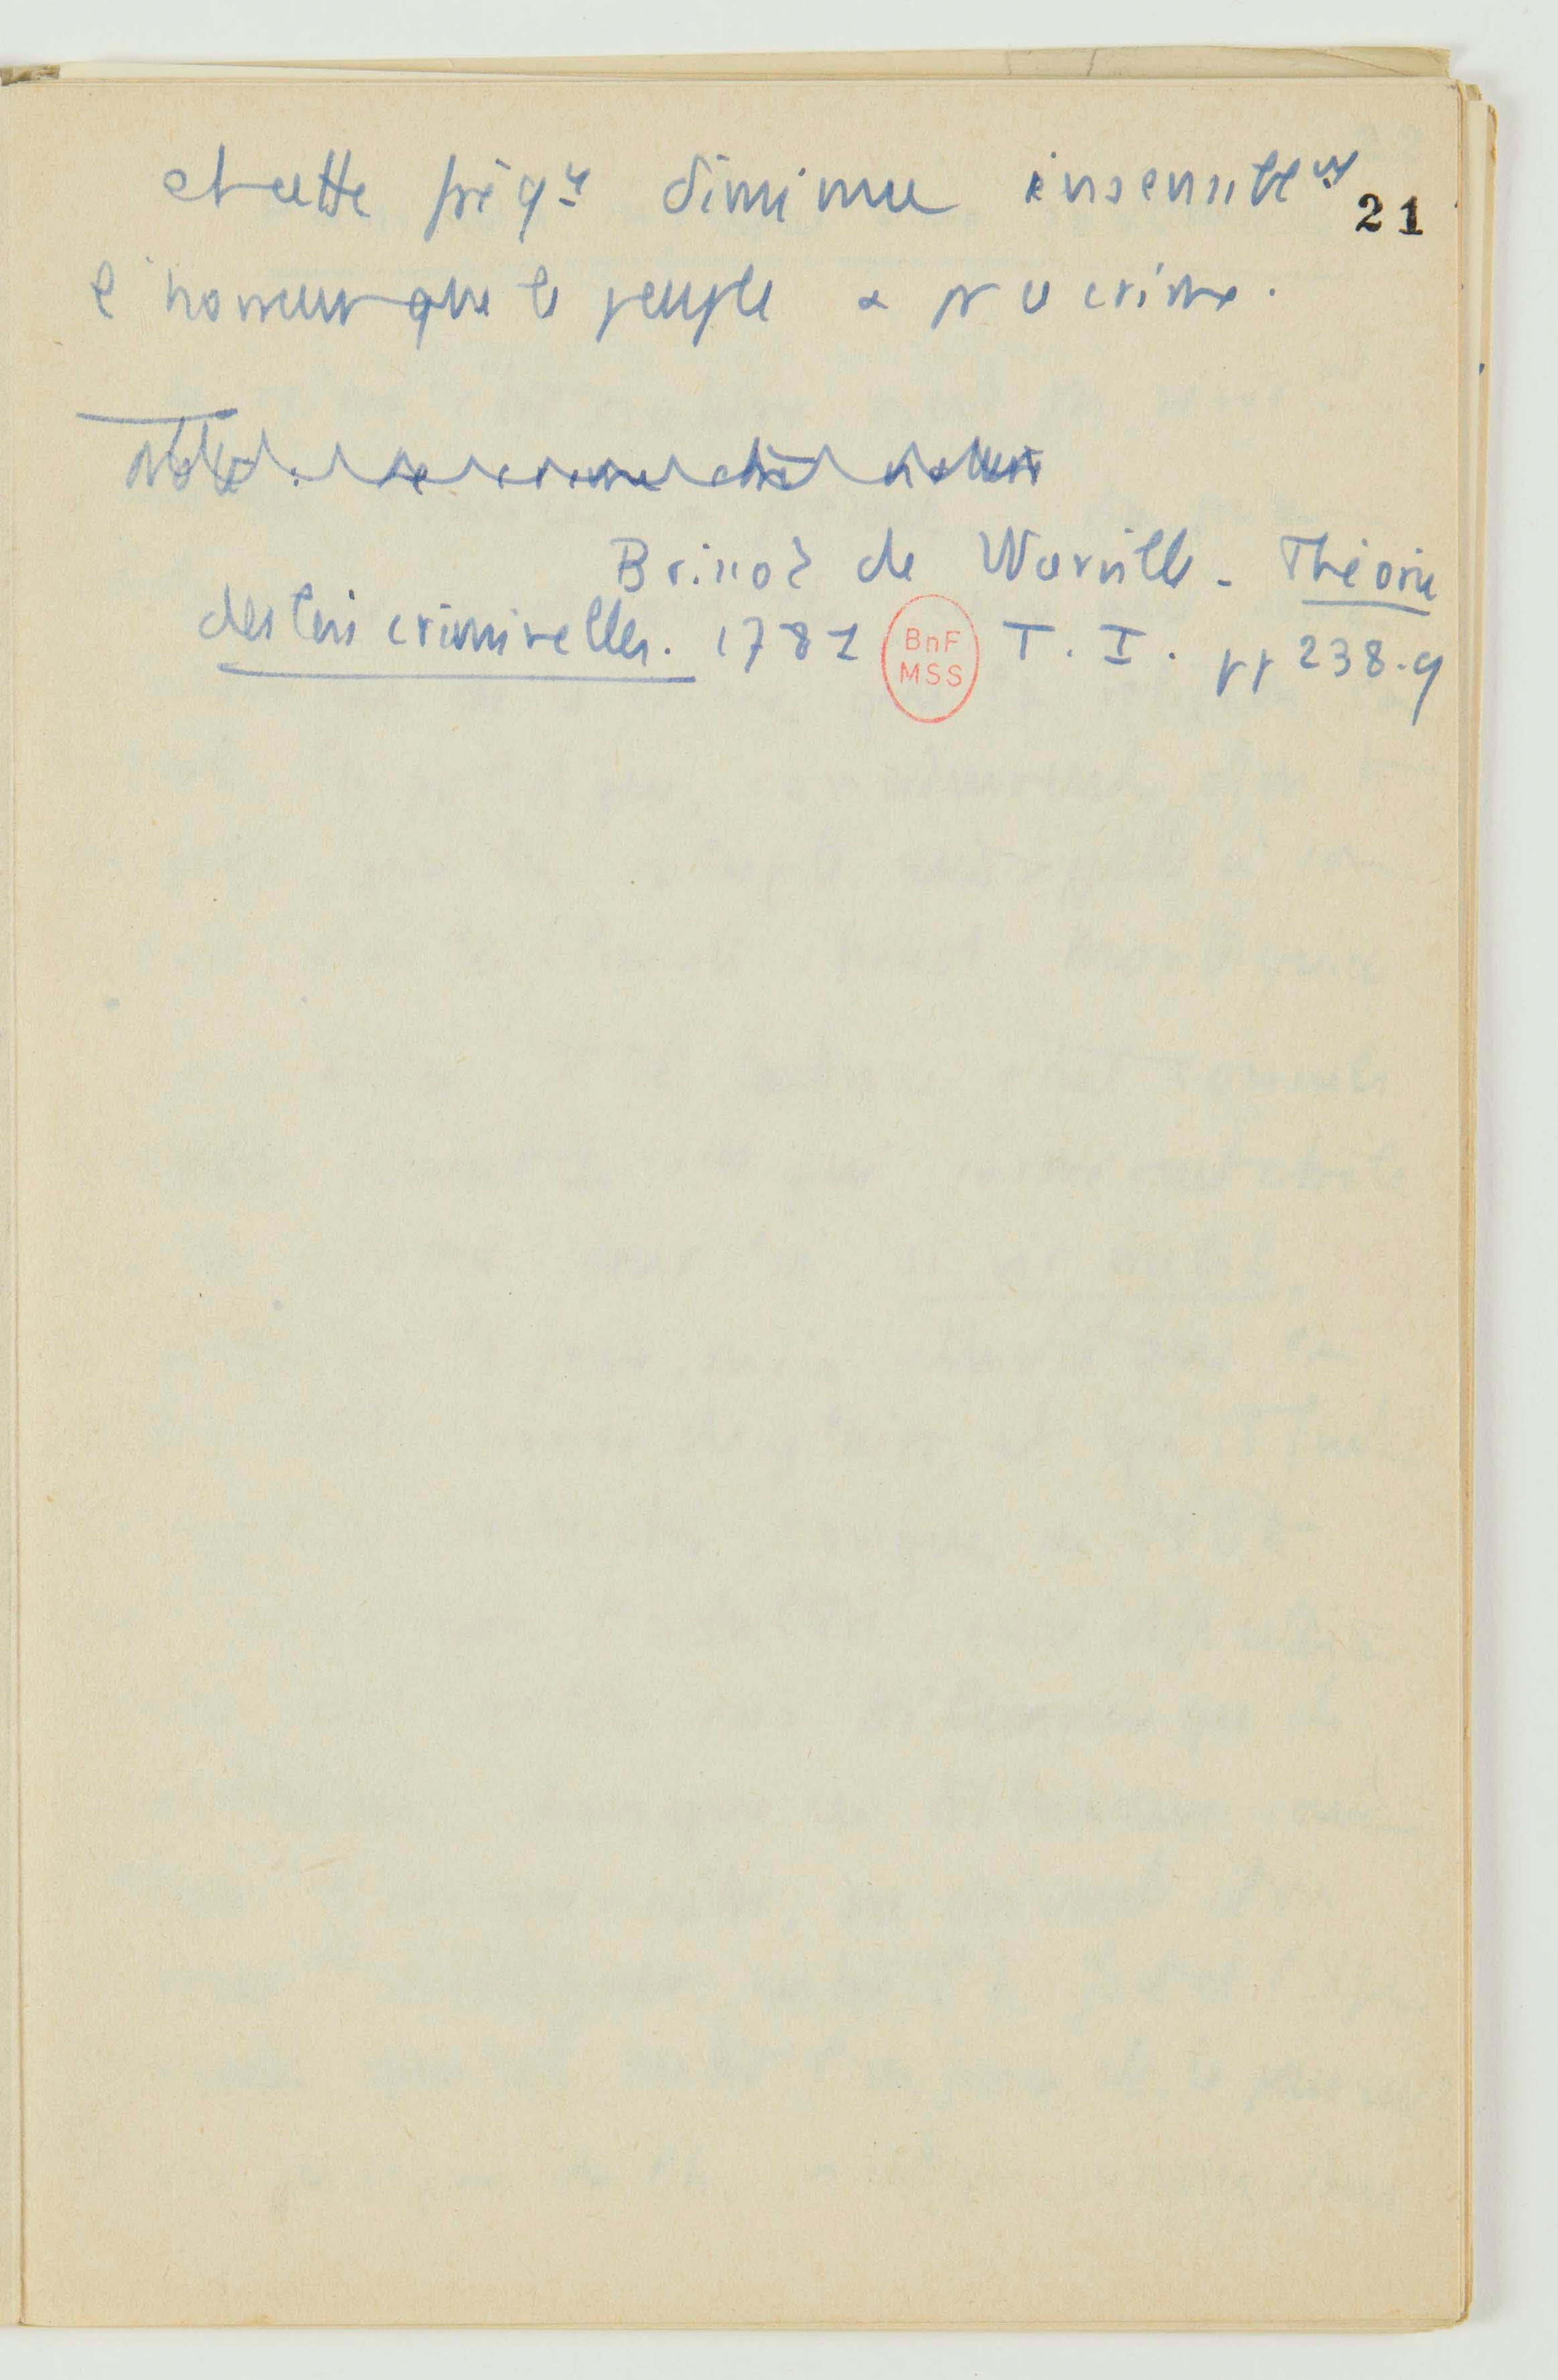 et cette fréq^ce diminue insensibl^mt
21
l'horreur que le peuple a pr le crime.
Note : le crime
Brissot de Warville. Théorie
des lois criminelles. 1781 T. I. pp 238.9
BnF
MSS